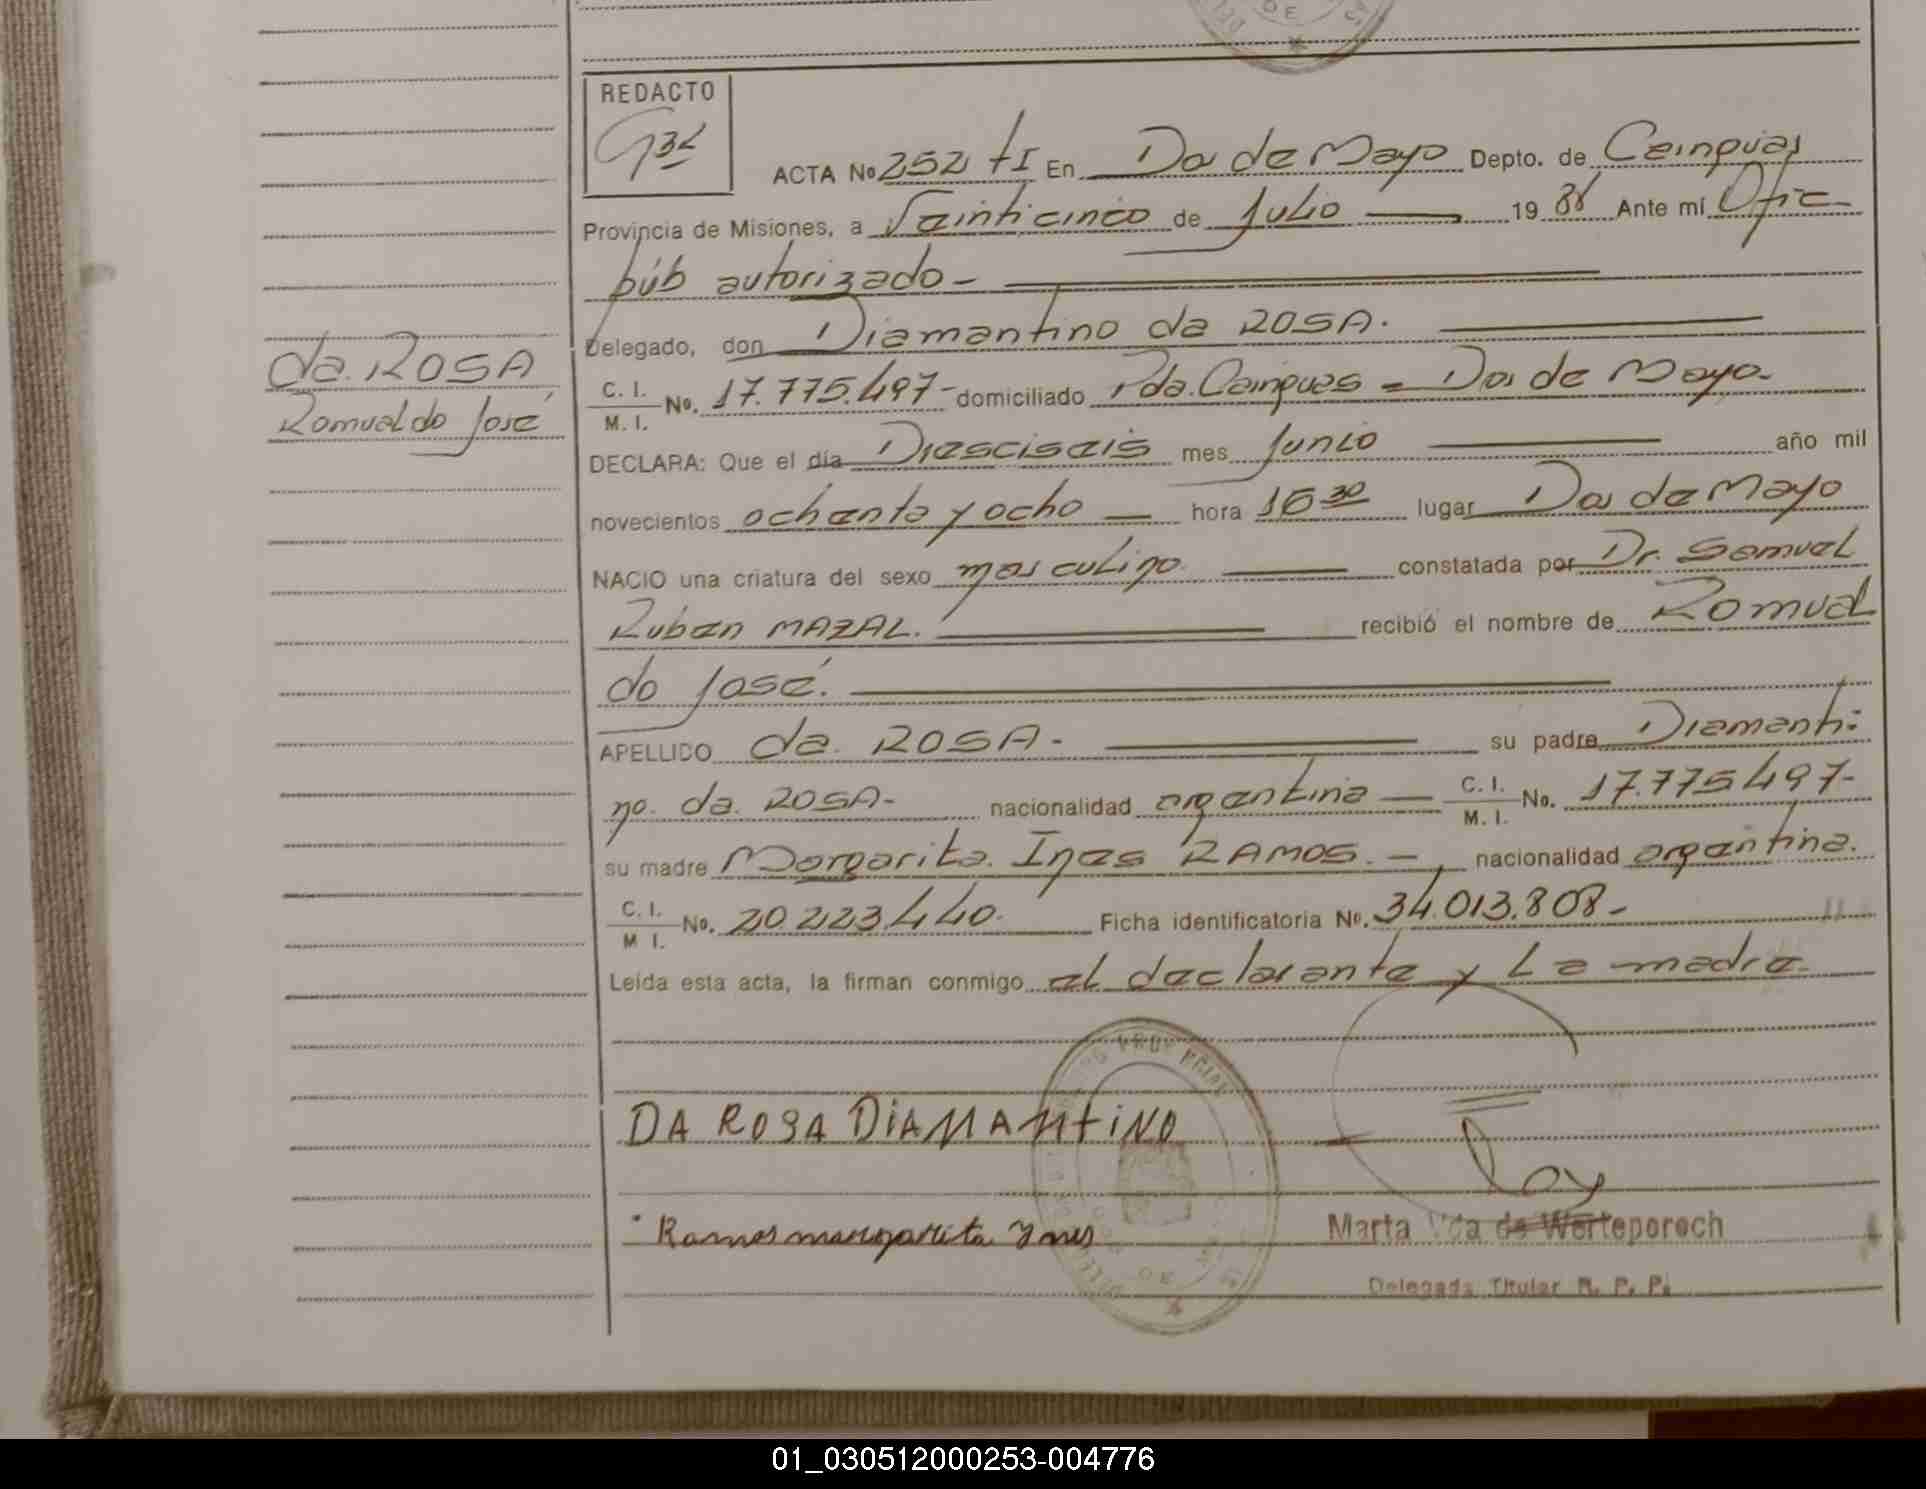 DE
REDACTO
ACTA No 252 tI En Dos de Mayo Depto. de Cainguas
Provincia de Misiones, a Veinticinco de Julio 19 88 Ante mí Ofic
púb autorizado -
Delegado, don Diamantino da ROSA.
da. ROSA
Romualdo José
C. I.
M. I. No. 17.775.497- domiciliado Pda. Cainguas = Dos de Mayo-
DECLARA: Que el día Diesciseis mes Junio año mil
novecientos ochenta y ocho hora 16 30 lugar Dos de Mayo
NACIO una criatura del sexo masculino. constatada por Dr. Samuel
Ruben MAZAL. recibió el nombre de Romual
do José.
APELLIDO da. ROSA - su padre Diamanti-
no. da. ROSA- nacionalidad argentina C. I.
M. I. No. 17.775497-
su madre Margarita. Ines RAMOS. - nacionalidad argentina.
C. I.
M I. No. 20.223.440. Ficha identificatoria No. 34.013.808-
Leída esta acta, la firman conmigo el declarante y La madre-
DA ROSA DIAMANTINO
Ramos margarita Ynes
Marta Vda de Werteporoch
Delegada Titular R. P. P.
01_030512000253-004776